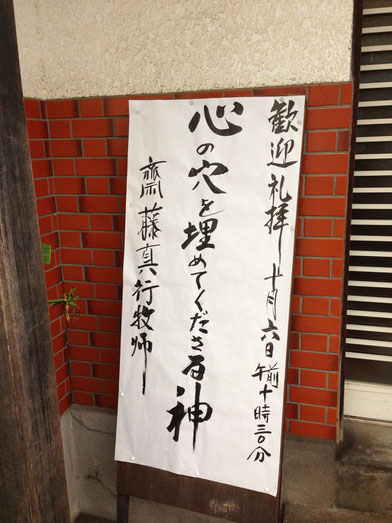 歓迎礼拝 十月六日 午前十時三〇分
心の穴を埋めてくださる神
齋藤真行牧師